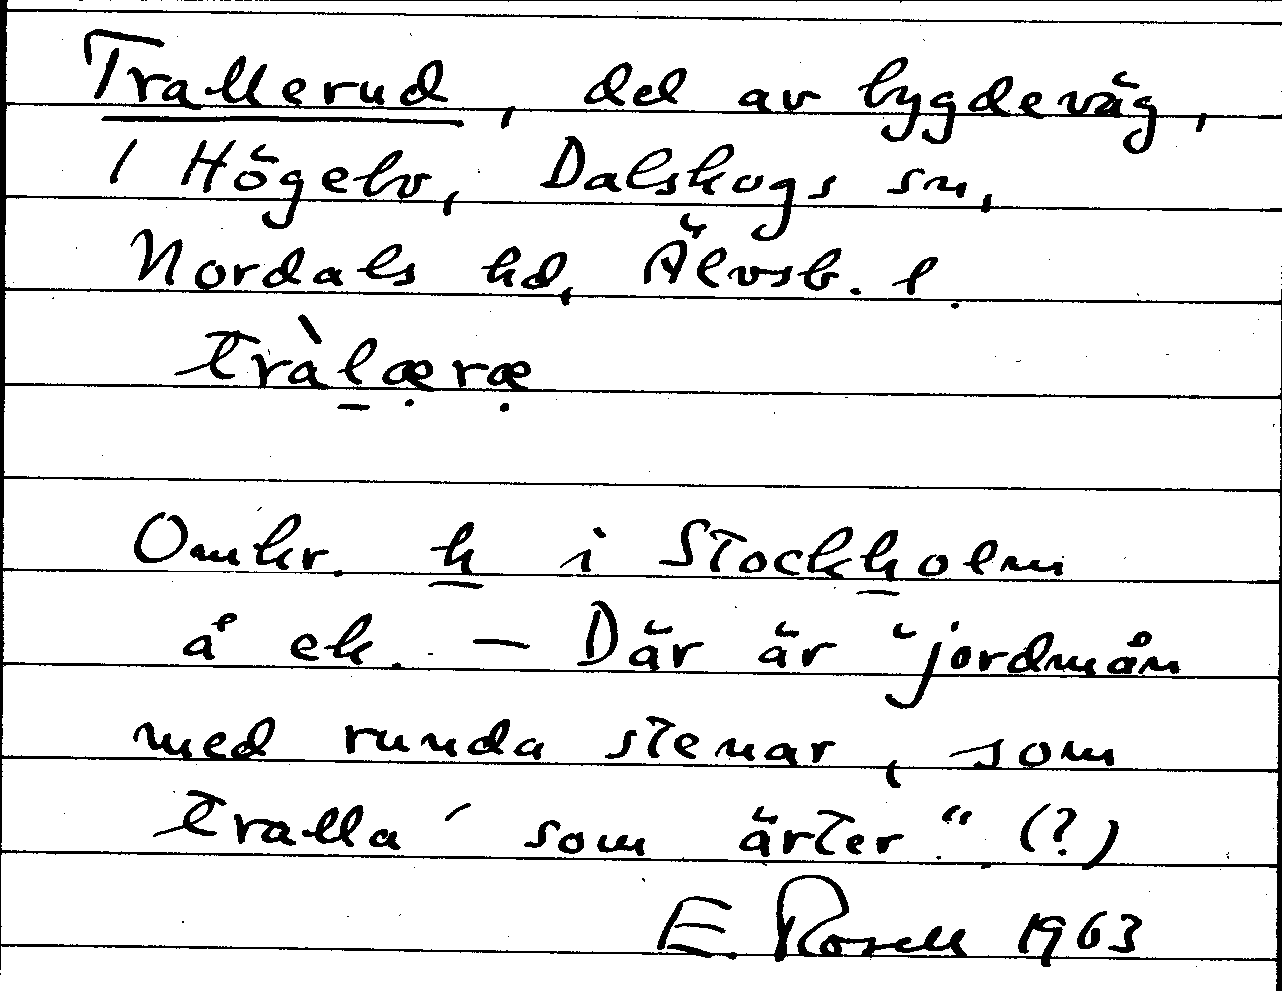 Trallerud, del av bygdeväg,
i Högelv, Dalskogs sn,
Nordals hd, Älvsb. l.
tràlæræ
Omkr. k i Stockholm
å ek. — Där är "jordmån
med runda stenar, som
tralla' som ärter". (?)
E. Rosell 1963